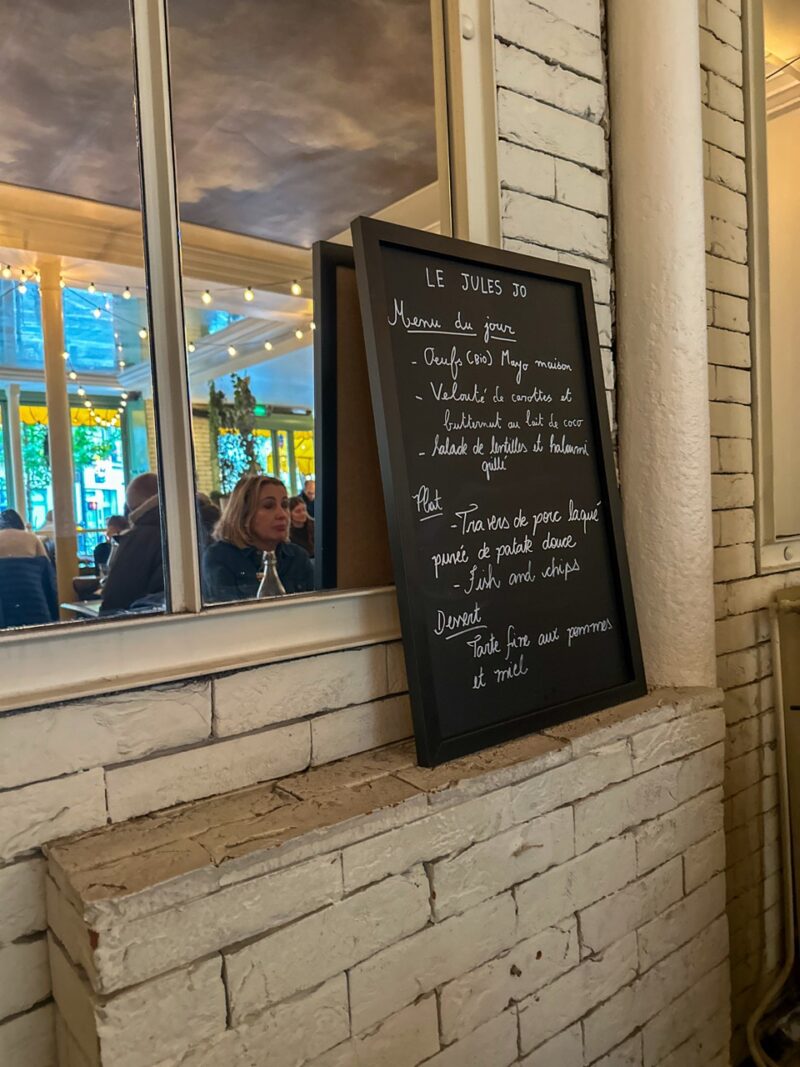 LE JULES JO
Menu du jour
- Oeufs (BIO) Mayo maison
- Velouté de carottes et
butternut au lait de coco
- Salade de lentilles et haloumi
grillé
Plat
- Travers de porc laqué
purée de patate douce
- Fish and chips
Dessert
Tarte fine aux pommes
et miel